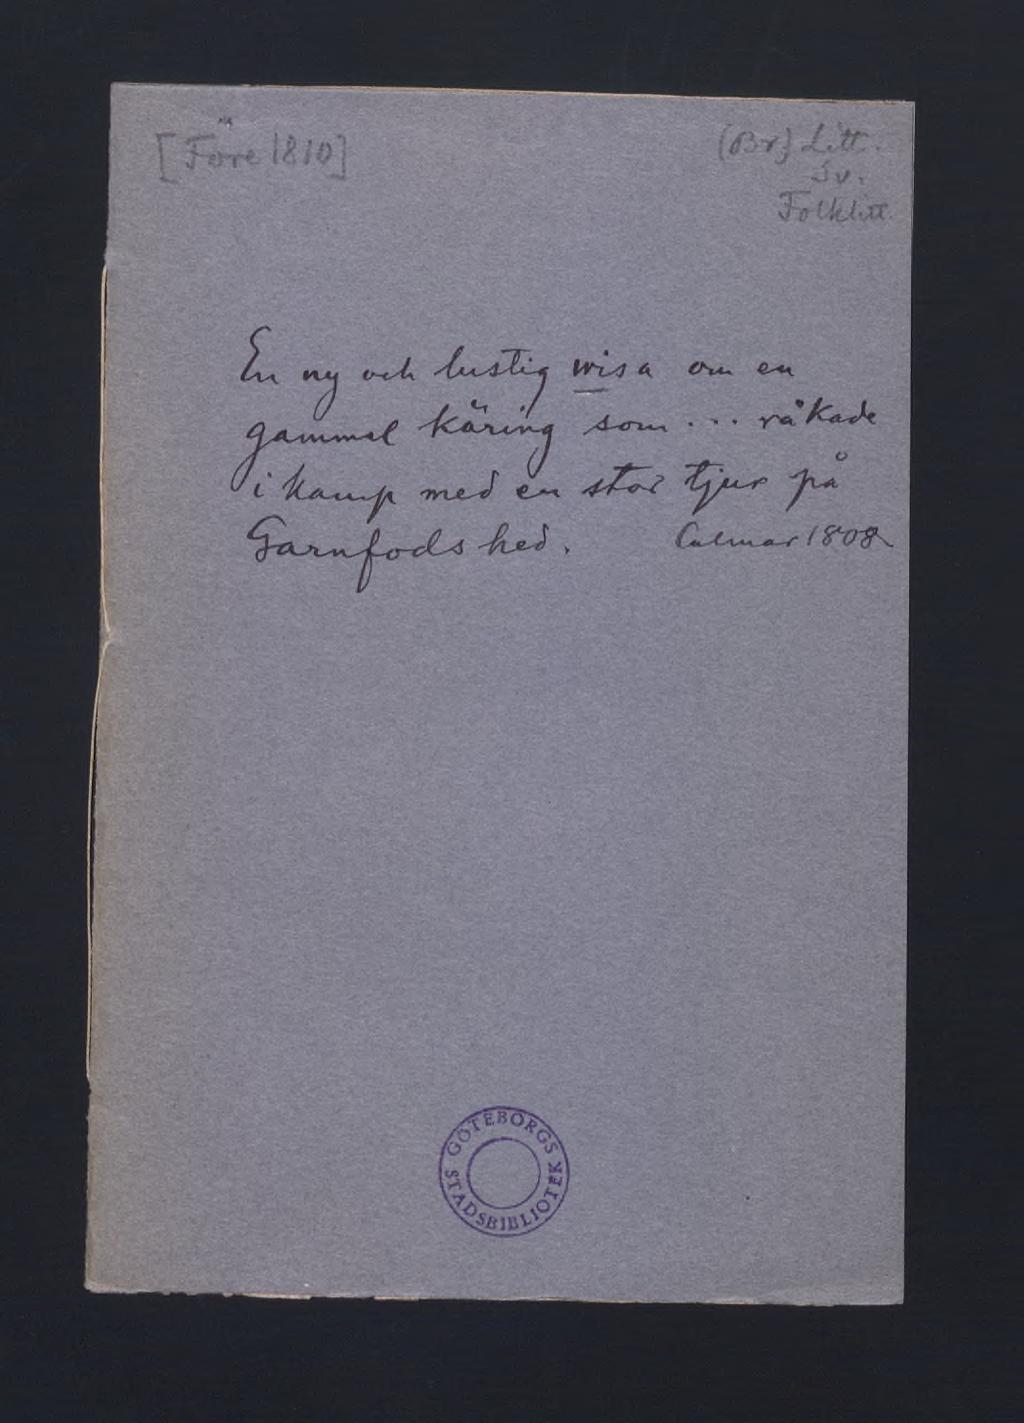 [Före 1810]
(Br) Litt.
Sv.
Folklitt.
En ny och lustig wisa om en
gammal käring som ... råkade
i kamp med en stor tjur på
Garnfods hed. Calmar 1808
GÖTEBORGS
STADSBIBLIOTEK